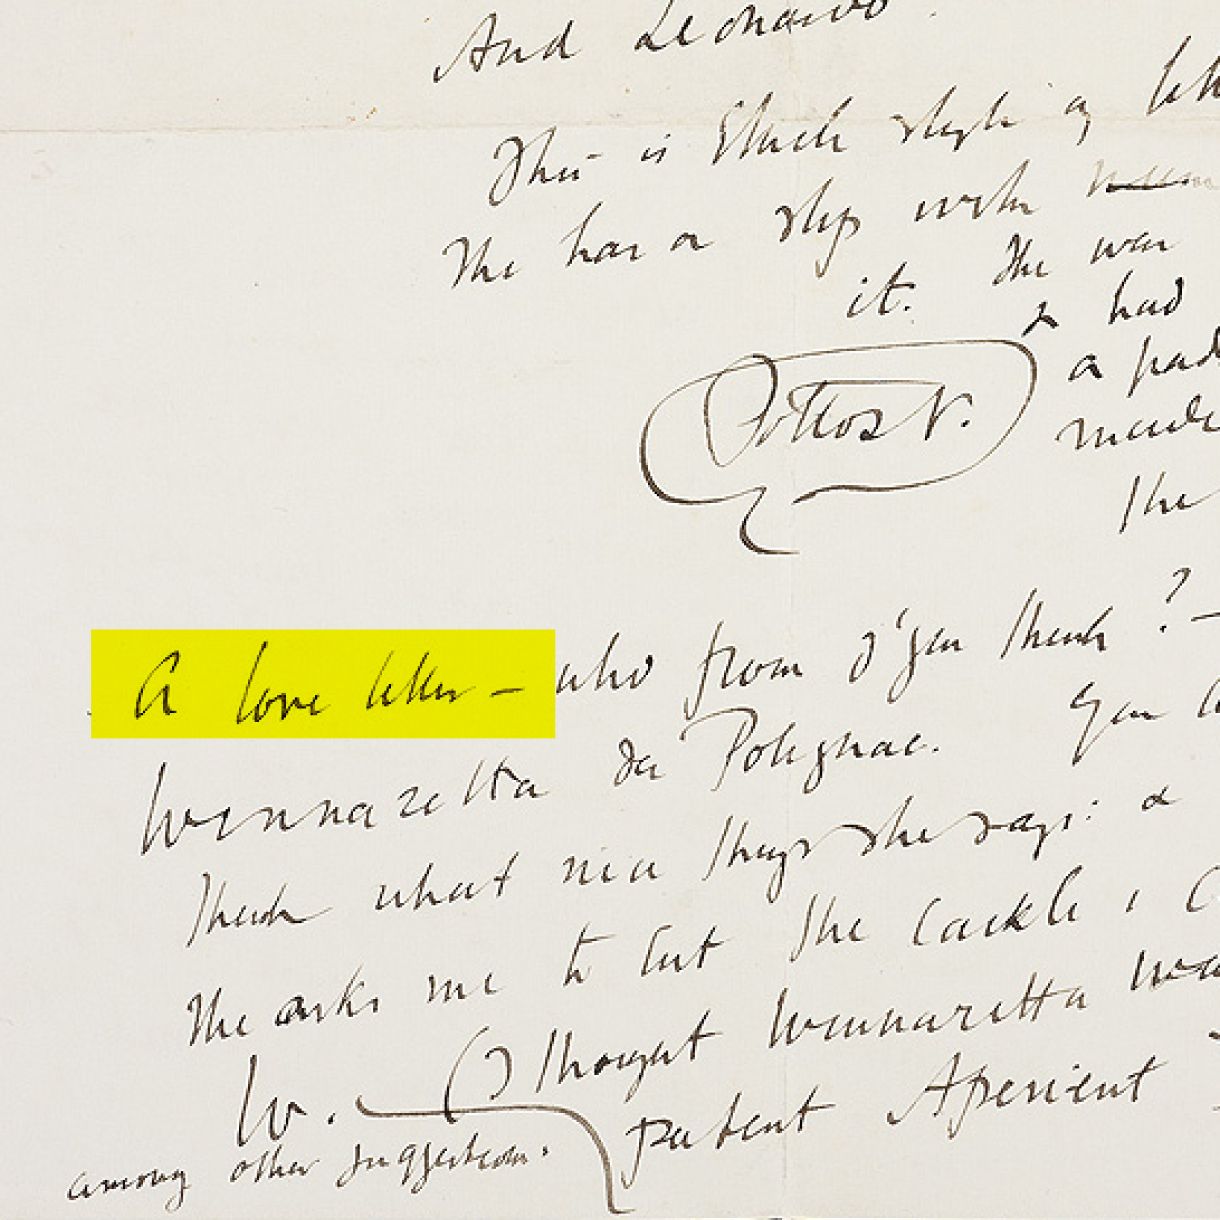 And Leonardo.
This is Black style of
She has a slip with
it. She was
& had
a pad
made
the
Potto & V.
A love letter – who from d'you think? –
Winnaretta de Polignac. You
Think what nice things she says: &
She asks me to cut the cackle &
W. I thought Winnaretta was
patent Aperient
among other suggestions.